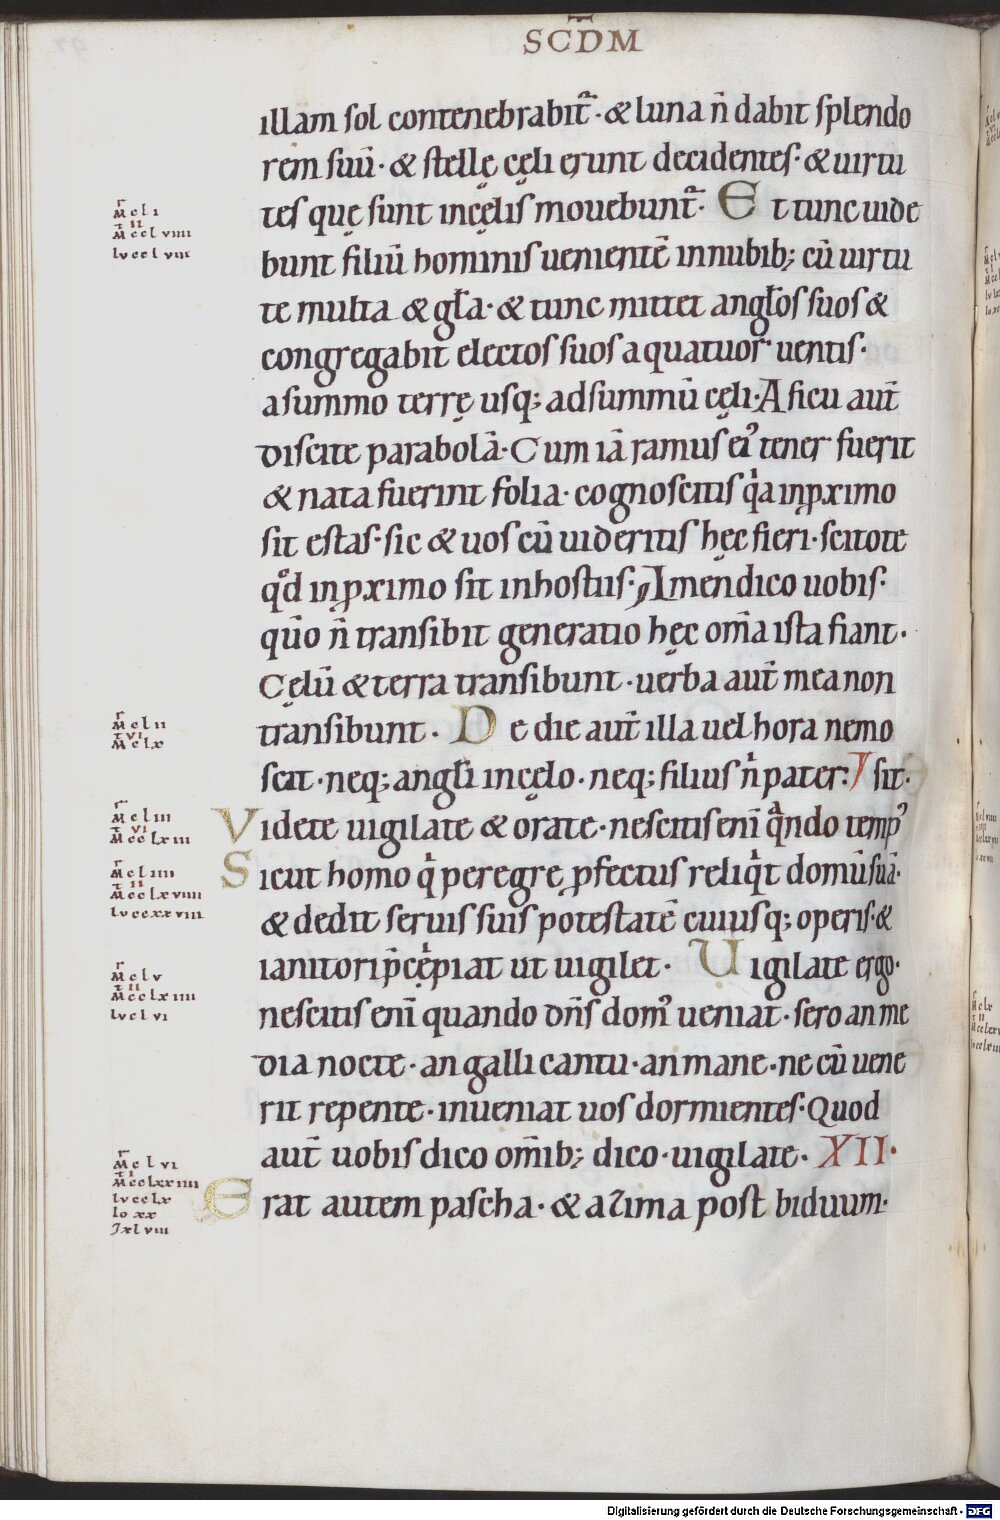 SCD̄M
illam sol contenebrabit᷑· & luna n̄ dabit splendo
rem suū· & stellę cęli erunt decidentes· & uirtu
tes quę sunt incęlis mouebunt᷑· Et tunc uide
bunt filiū hominis uenientē innubib; cū uirtu
te multa & gƚa· & tunc mittet angƚos suos &
congregabit electos suos a quatuor uentis·
asummo terrę usq; adsummū cęli· A ficu aut̄
discite parabolā· Cum iā ramus eiꝰ tener fuerit
& nata fuerint folia· cognoscitis qͥa inꝓximo
sit estas· sic & uos cū uideritis hęc fieri· scitote
qͦd inꝓximo sit inhostiis· Amen dico uobis·
qūo n̄ transibit generatio hęc om̄a ista fiant·
Cęlū & terra transibunt· uerba aut̄ mea non
transibunt· De die aut̄ illa uel hora nemo
scit· neq; angƚi incęlo· neq; filius nͥ pater: / sit·
Videte uigilate & orate· nescitis eni̅ qᷓndo tempꝰ
Sicut homo qͥ peregre ꝓfectus reliqͥt domū suā·
& dedit seruis suis potestatē cuiusq; operis· &
ianitori p̄cęͥpiat ut uigilet· Uigilate ergo·
nescitis eni̅ quando dn̄s domꝰ ueniat· sero an me
dia nocte· an galli cantu· an mane· ne cū uene
rit repente· inueniat uos dormientes· Quod
aut̄ uobis dico om̄ib; dico· uigilate· XII·
Erat autem pascha· & azima post biduum·
r
M cl i
t II
M ccl viiii
lv ccl viii
r
M cl ii
t VI
M cc lx
r
M cl iii
t VI
M cc lx iii
r
M cl iiii
t II
M cc lx viiii
lv ccc xx viii
r
M cl v
t II
M cc lx iiii
lv cl vi
r
M cl vi
t I
M cc lxx iiii
lv cc lx
Io xx
J xl viii
Digitalisierung gefördert durch die Deutsche Forschungsgemeinschaft - DFG